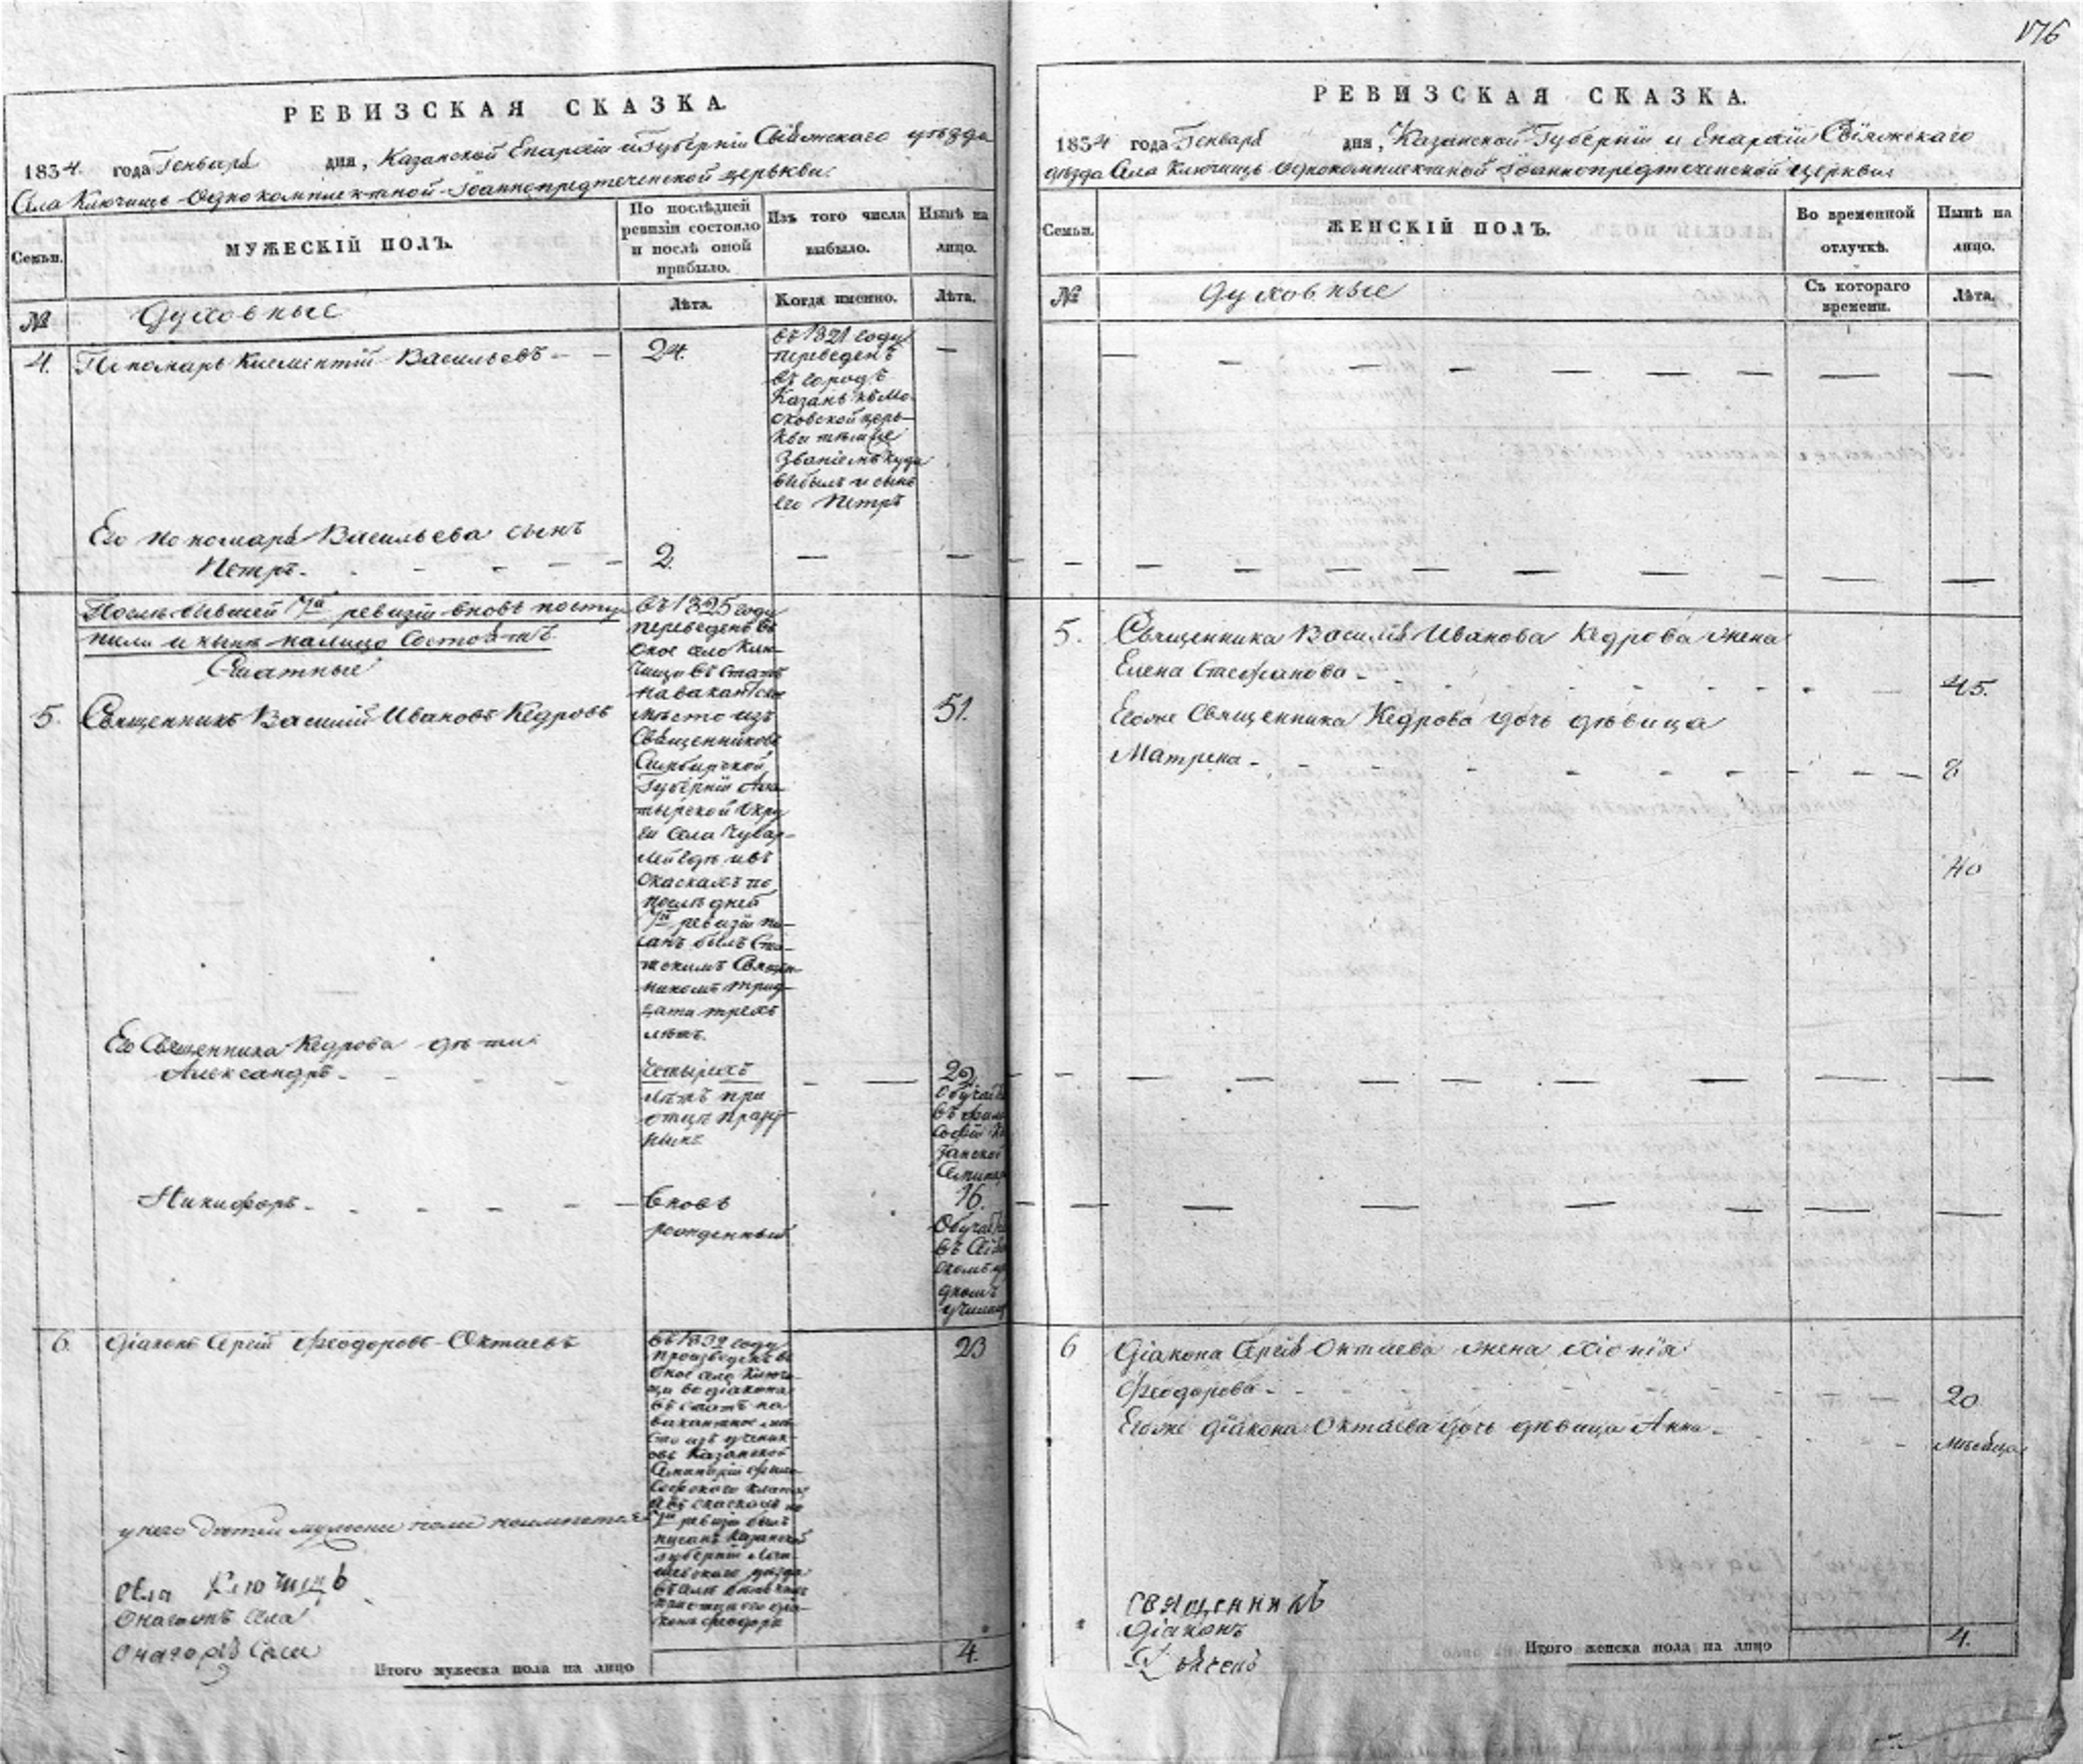 176
РЕВИЗСКАЯ СКАЗКА.
1834 года Генваря дня, Казанской Епархіи и Губерніи Свіяжскаго уѣзда
Села Ключищъ Однокомплектной Іоаннопредтеченской церькви.
Семьи.
МУЖЕСКІЙ ПОЛЪ.
По послѣдней
ревизіи состояло
и послѣ оной
прибыло.
Изъ того числа
выбыло.
Нынѣ на
лицо.
№
Духовные
Лѣта.
Когда именно.
Лѣта.
4. Пономарь Климентій Васильевъ - - 24. —
въ 1821 году
переведенъ
въ городъ
Казань къ Мо
сковской церь-
кви тѣмже
званіемъ куда
выбылъ и сынъ
его Петръ
Его пономаря Васильева сынъ
Петръ. - - - - 2. — —
Послѣ бывшей 7й ревизіи вновь посту
пили и нынѣ налицо состоятъ
Статные
5. Священникъ Василій Ивановъ Кедровъ 51.
въ 1825 году
переведенъ въ
оное село Клю-
чищи въ статъ
на вакантное
мѣсто изъ
Священниковъ
Симбирской
Губерніи Ала-
тырской Окру
ги села Чувар-
лей гдѣ и въ
сказкахъ по
послѣдней
7й ревизіи пи-
санъ былъ Ста-
тскимъ Священ-
никомъ трид-
цати трехъ
лѣтъ.
Его Священника Кедрова дѣти
Александръ - - - - — — 22
четырехъ
лѣтъ при
отцѣ
Обучает
въ фило
софіи Ка
занской
Семинар
Никифоръ - - - - - 16.
вновь
рожденный
Обучает
въ Свія
скомъ уѣ
дномъ
училищ
6. Діаконъ Сергій Феодоровъ Октаевъ 23
въ 1832 году
произведенъ въ
оное село Ключи-
щи во діакона
въ статъ на
вакантное мѣ-
сто изъ ученик-
овъ Казанской
Семинаріи фило-
софскаго класса
а въ сказкахъ по
7й ревизіи былъ
писанъ Казанской
губерніи
уѣзда
въ селѣ
при отцѣ его діа-
конѣ Феодорѣ
у него дѣтей мужска пола неимѣется
села Ключищъ
онагожъ села
онагожъ села
Итого мужеска пола на лицо 4.
РЕВИЗСКАЯ СКАЗКА.
1834 года Генваря дня, Казанской Губерніи и Епархіи Свіяжскаго
уѣзда Села Ключищъ Однокомплектной Іоаннопредтеченской церкви
Семьи.
ЖЕНСКІЙ ПОЛЪ.
Во временной
отлучкѣ.
Нынѣ на
лицо.
№
Духовные
Съ котораго
времени.
Лѣта.
5. Священника Василія Иванова Кедрова жена
Елена Стефанова - - - - 45.
Егоже Священника Кедрова дочь дѣвица
Матрена - - - - 8
40
6 Діакона Сергія Октаева жена Хіонія
Феодорова - - - - 20
Егоже Діакона Октаева дочь дѣвица Анна - мѣсяца
Священникъ
Діаконъ
Дьячекъ
Итого женска пола на лицо 4.